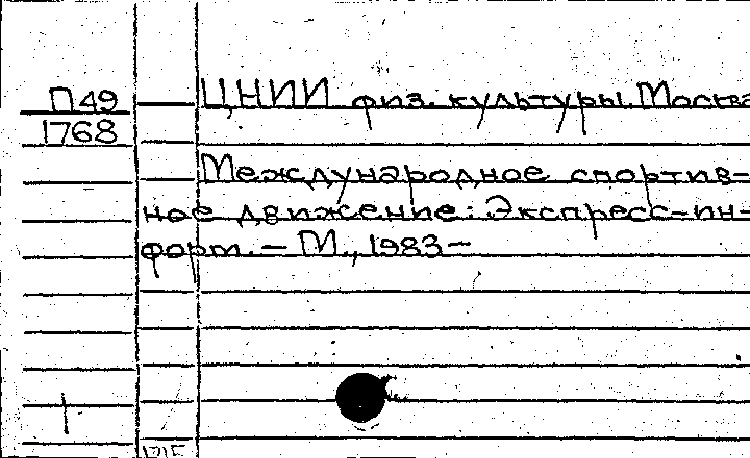 П49
1768
ЦНИИ физ. культуры. Москва
Международное спортив-
ное движение: Экспресс-ин-
форм. – М., 1983 –